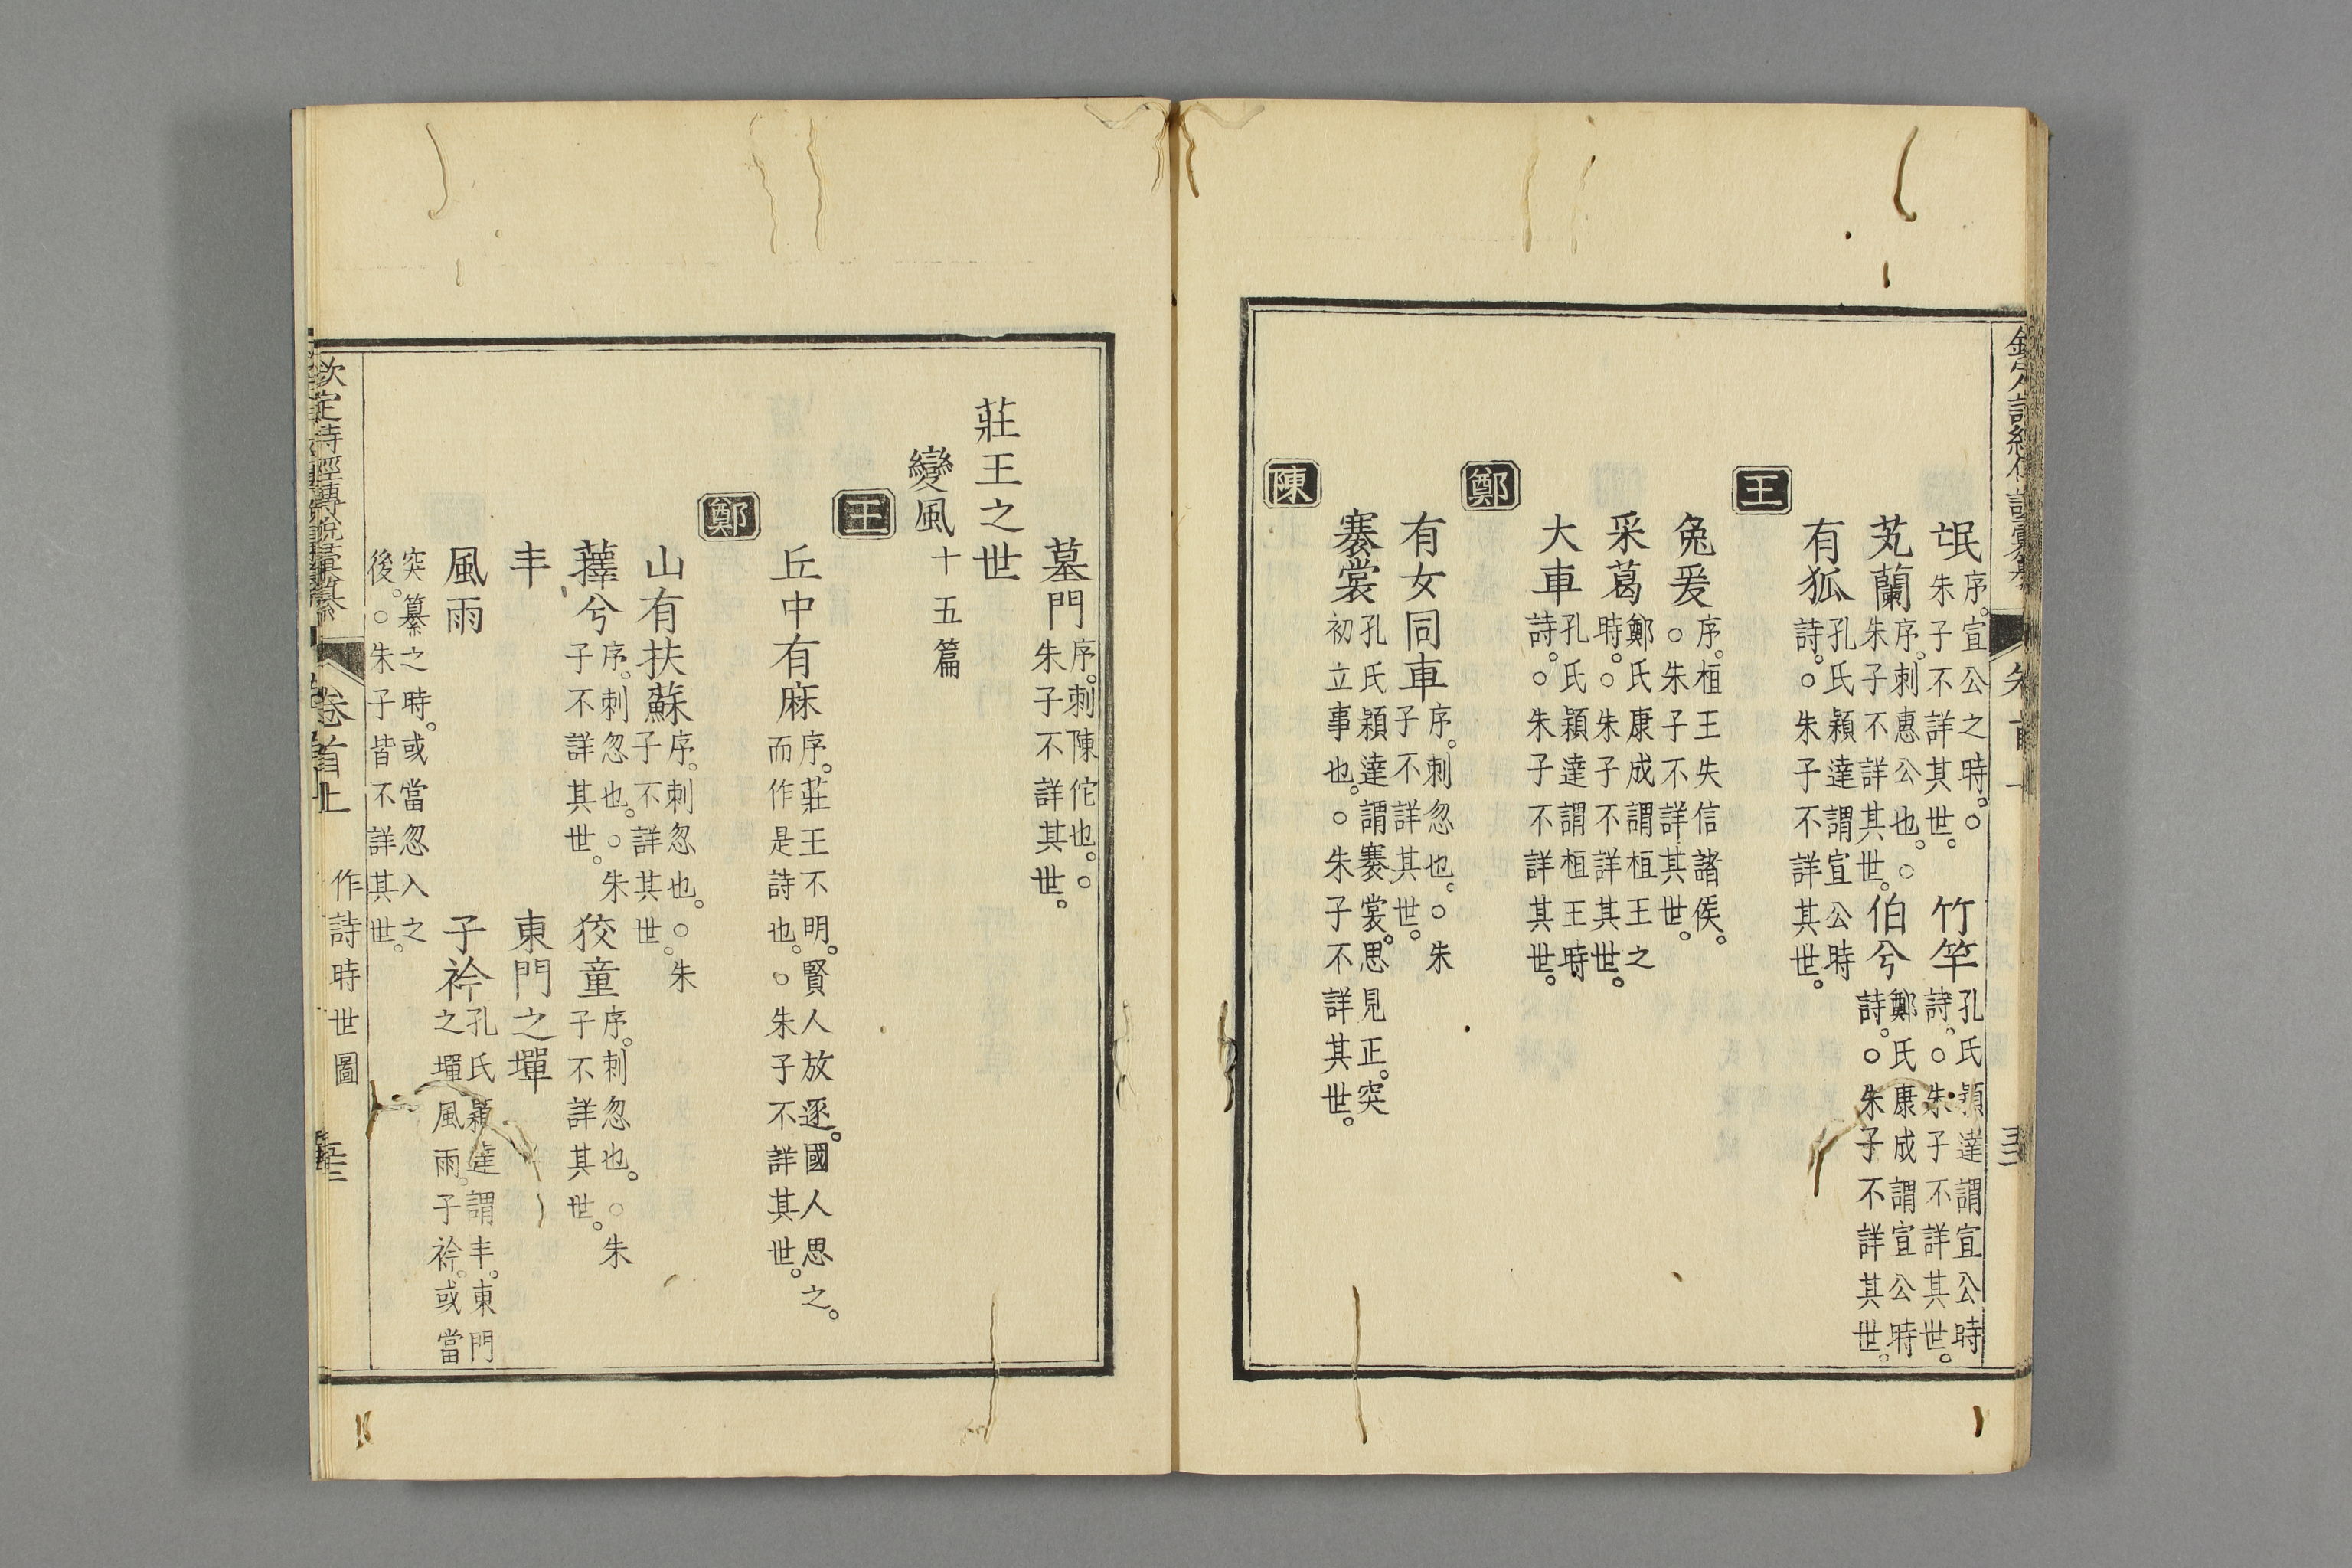 氓序。宣公之時。○朱子不詳其世。 竹竿孔氏穎達謂宣公時詩。○朱子不詳其世。
芄蘭序。刺惠公也。○朱子不詳其世。 伯兮鄭氏康成謂宣公時詩。○朱子不詳其世。
有狐孔氏穎達謂宣公時詩。○朱子不詳其世。
王
兔爰序。桓王失信諸侯。○朱子不詳其世。
采葛鄭氏康成謂桓王之時。○朱子不詳其世。
大車孔氏穎達謂桓王時詩。○朱子不詳其世。
鄭
有女同車序。刺忽也。○朱子不詳其世。
褰裳孔氏穎達謂褰裳。思見正。突初立事也。○朱子不詳其世。
陳
墓門序。刺陳佗也。○朱子不詳其世。
莊王之世
變風十五篇
王
丘中有麻序。莊王不明。賢人放逐。國人思之。而作是詩也。○朱子不詳其世。
鄭
山有扶蘇序。刺忽也。○朱子不詳其世。
蘀兮序。刺忽也。○朱子不詳其世。 狡童序。刺忽也。○朱子不詳其世。
丰 東門之墠
風雨 子衿孔氏穎達謂丰。東門之墠風雨。子衿。或當
突篡之時。或當忽入之後。○朱子皆不詳其世。
欽定詩經傳說彙纂 卷首上 作詩時世圖